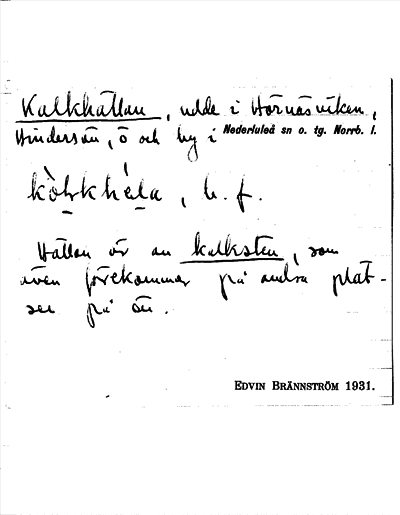 Kalkhällan, udde i Hornäsviken,
Hindersön, ö och by i Nederluleå sn o. tg. Norrb. l.
b. f.
Hällan är av kalksten, som
även förekommer på andra plat-
ser på ön.
EDVIN BRÄNNSTRÖM 1931.